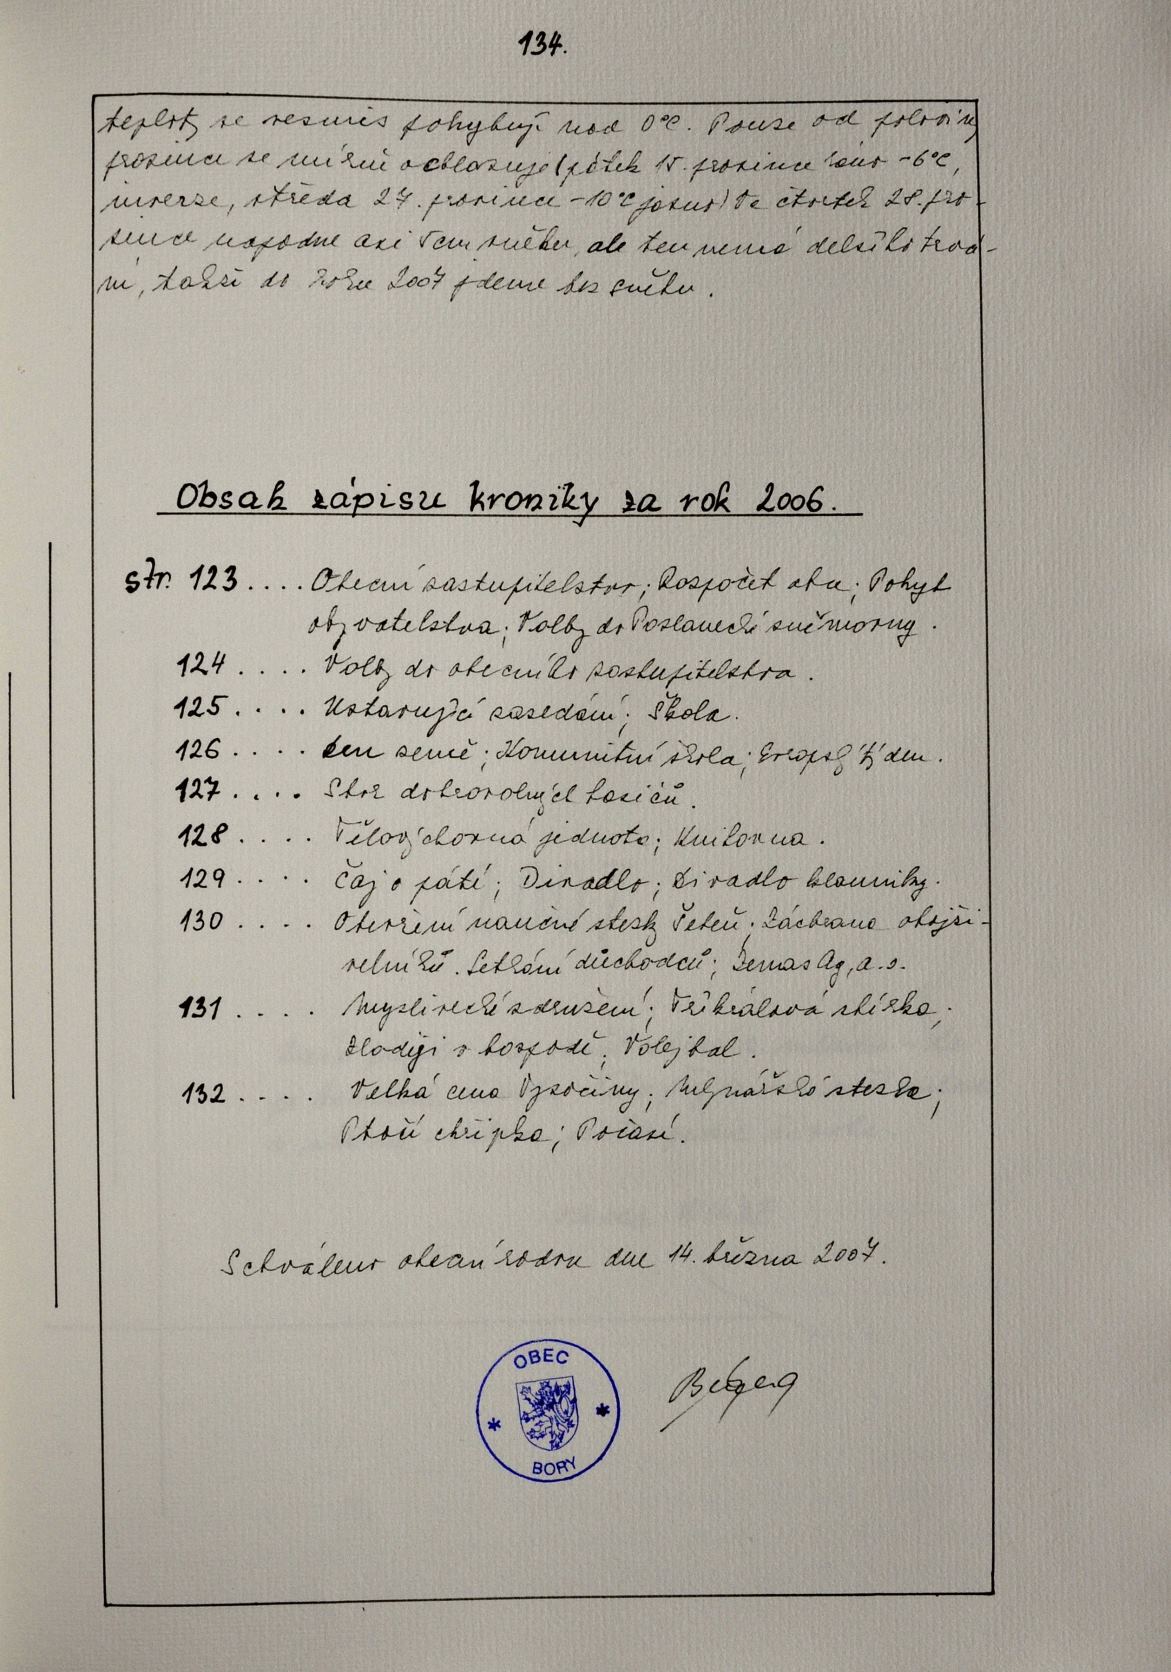 134.
teploty se vesměs pohybují nad 0°C. Pouze od poloviny
prosince se mírně ochlazuje (pátek 15. prosince ráno -6°C,
inverze, středa 27. prosince -10°C jasno) Ve čtvrtek 28. pro-
since napadne asi 5 cm sněhu, ale ten nemá delšího trvá-
ní, takže do roku 2007 jdeme bez sněhu.
Obsah zápisu kroniky za rok 2006.
str. 123.... Obecní zastupitelstvo; Rozpočet obce; Pohyb
obyvatelstva; Volby do Poslanecké sněmovny.
124.... Volby do obecního zastupitelstva.
125.... Ustavující zasedání; Škola.
126.... Den země; Komunitní škola; Evropský týden.
127.... Sbor dobrovolných hasičů.
128.... Tělovýchovná jednota; Knihovna.
129.... Čaj o páté; Divadlo; Divadlo Hlavničky.
130.... Otevření naučné stezky Šebeň; Záchrana obojži-
velníků. Setkání důchodců; Zemas Ag, a.s.
131.... Myslivecké sdružení; Tříkrálová sbírka;
Zloději v hospodě; Volejbal.
132.... Velká cena Vysočiny; Mlynářská stezka;
Ptačí chřipka; Počasí.
Schváleno obecní radou dne 14. března 2007.
OBEC
BORY